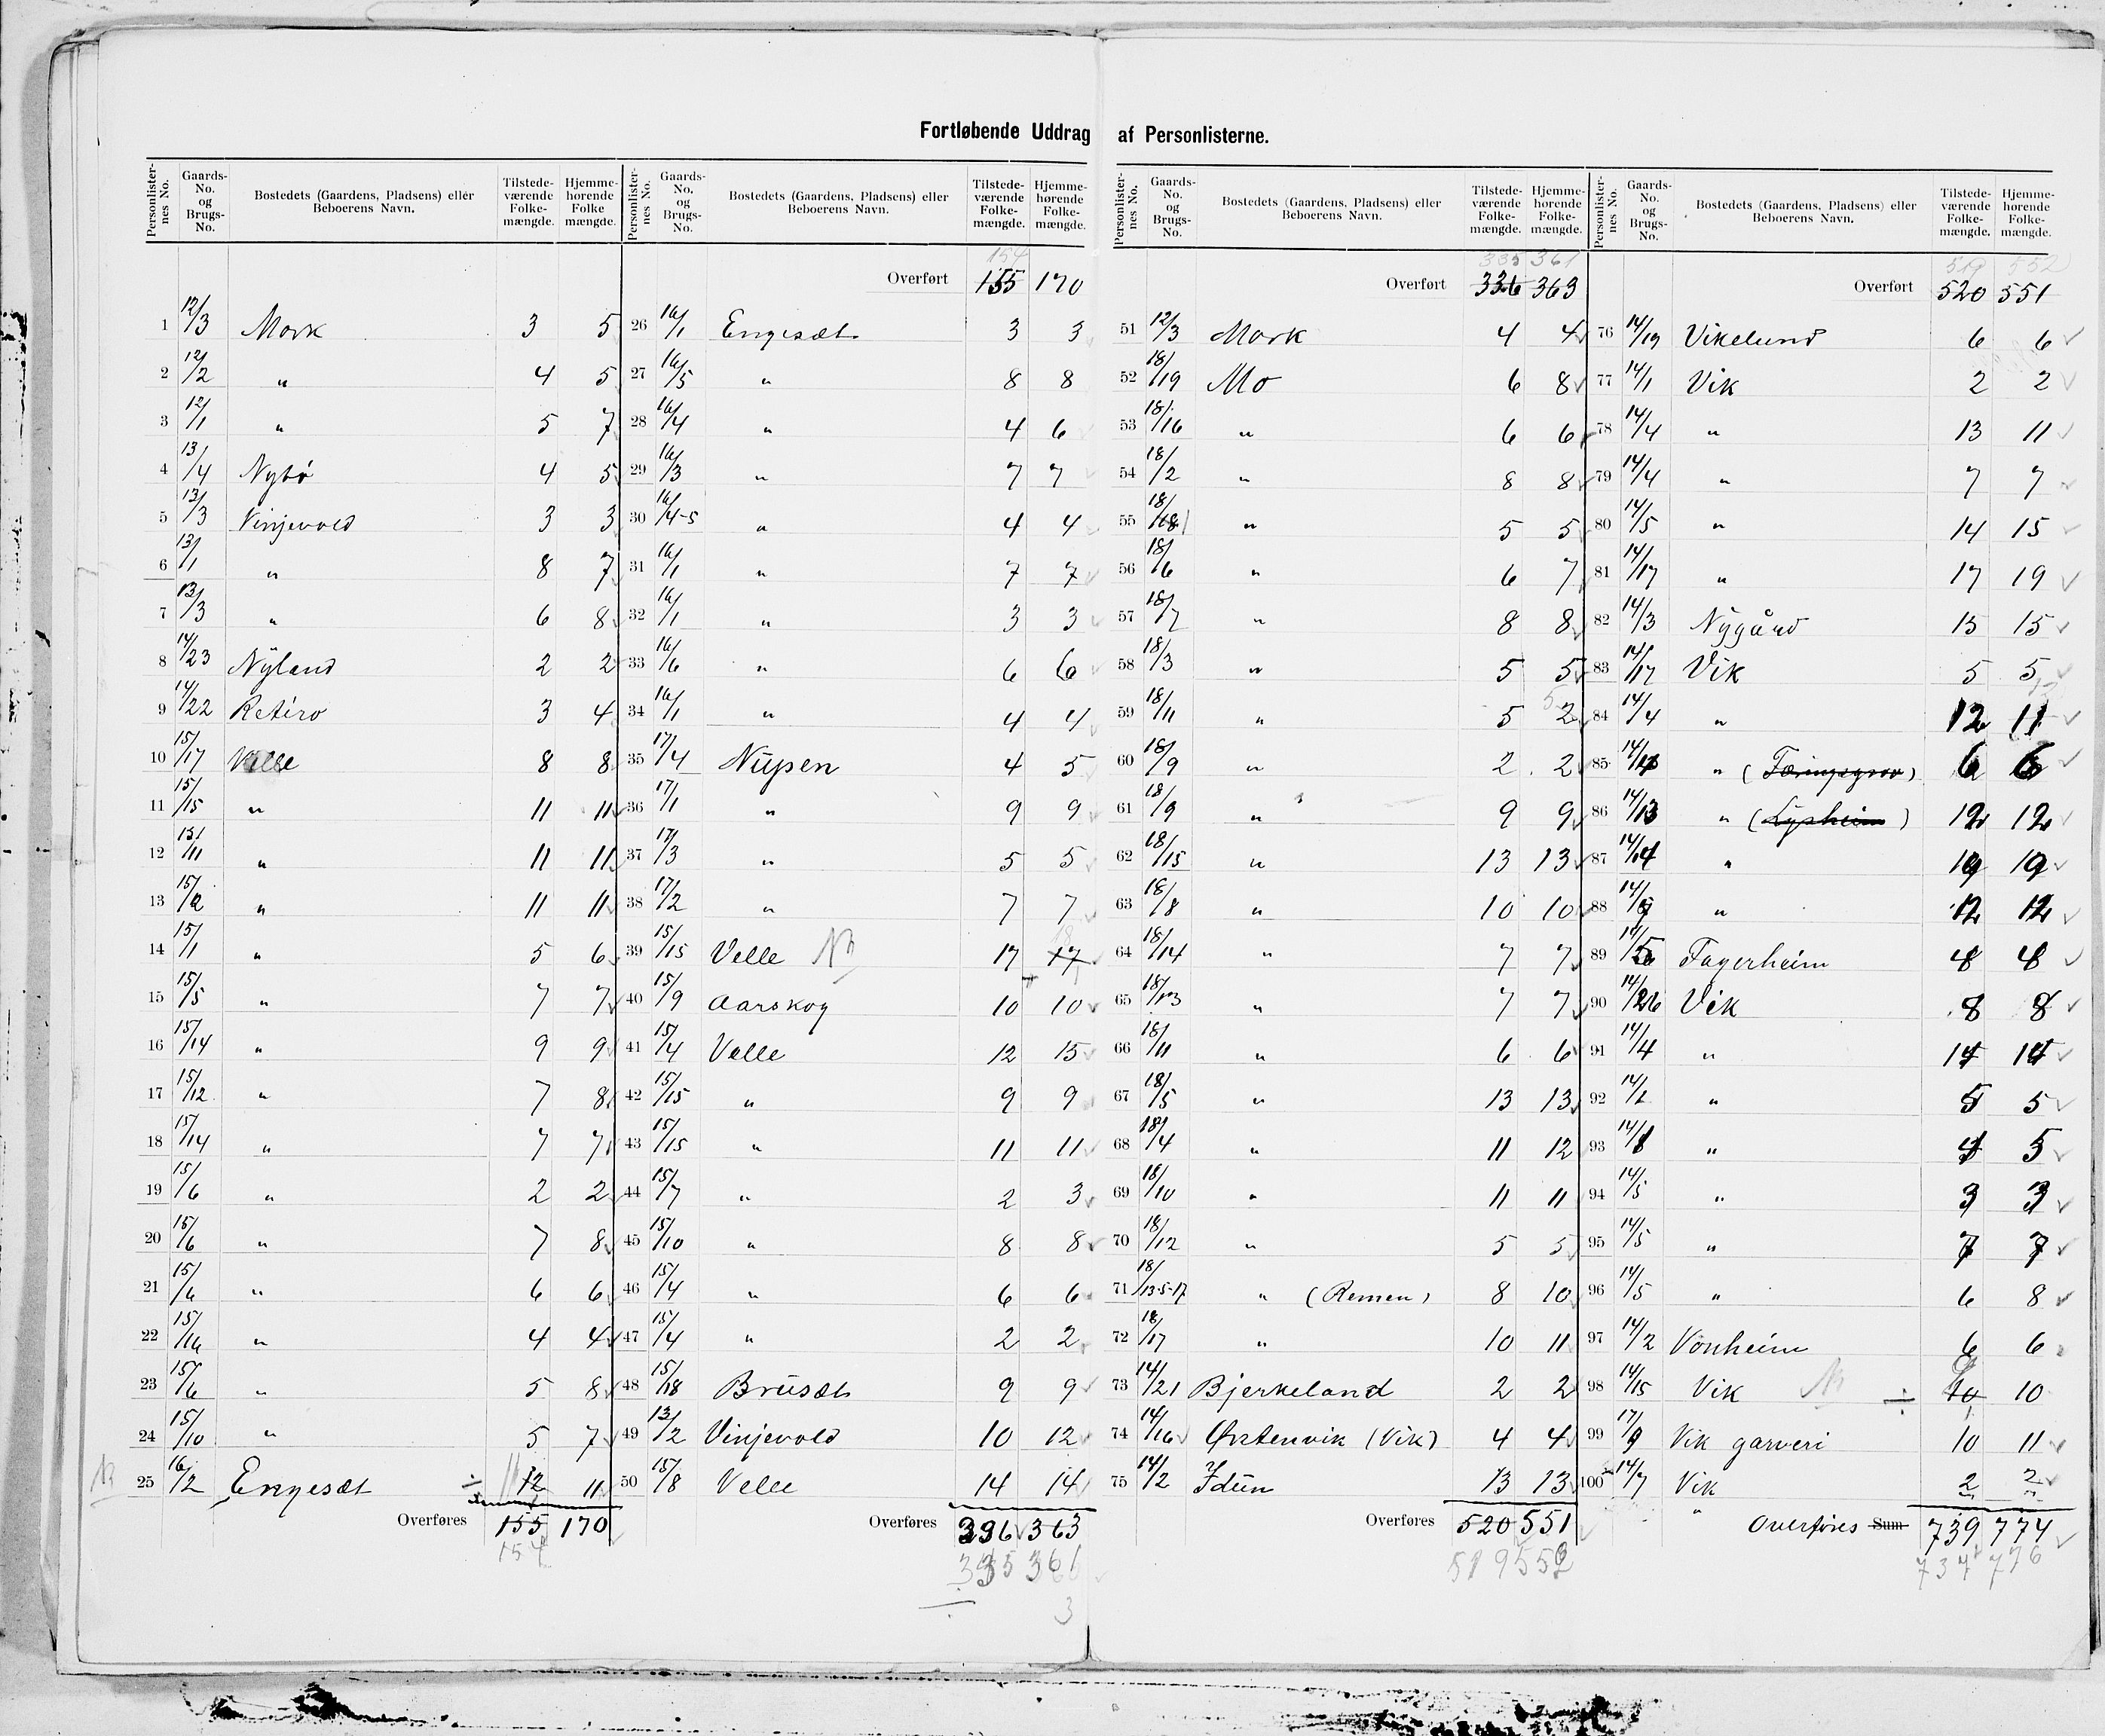 Fortløbende Uddrag af Personlisterne.
Personlisternes No. Gaards-No. og Brugs-No. Bostedets (Gaardens, Pladsens) eller Beboerens Navn. Tilstedeværende Folkemængde. Hjemmehørende Folkemængde.
1 12/3 Mork 3 5
2 12/2 " 4 5
3 12/1 " 5 7
4 13/4 Nybø 4 5
5 13/3 Vinjevold 3 3
6 13/1 " 8 7
7 13/3 " 6 8
8 14/23 Nyland 2 2
9 14/22 Retiro 3 4
10 15/17 Velle 8 8
11 15/15 " 11 11
12 15/11 " 11 11
13 15/2 " 11 11
14 15/1 " 5 6
15 15/5 " 7 7
16 15/14 " 9 9
17 15/12 " 7 8
18 15/14 " 7 7
19 15/6 " 2 2
20 15/6 " 7 8
21 15/6 " 6 6
22 15/16 " 4 4
23 15/6 " 5 8
24 15/10 " 5 7
25 16/2 Engesæt 12 11
Overføres 155 170
154
Personlisternes No. Gaards-No. og Brugs-No. Bostedets (Gaardens, Pladsens) eller Beboerens Navn. Tilstedeværende Folkemængde. Hjemmehørende Folkemængde.
154
Overført 155 170
26 16/1 Engesæt 3 3
27 16/5 " 8 8
28 16/4 " 4 6
29 16/3 " 7 7
30 16/4-5 " 4 4
31 16/1 " 7 7
32 16/1 " 3 3
33 16/6 " 6 6
34 16/1 " 4 4
35 17/4 Nupen 4 5
36 17/1 " 9 9
37 17/3 " 5 5
38 17/2 " 7 7
39 15/15 Velle 17 17 18
40 15/9 Aarskog 10 10
41 15/4 Velle 12 15
42 15/15 " 9 9
43 15/15 " 11 11
44 15/7 " 2 3
45 15/10 " 8 8
46 15/4 " 6 6
47 15/4 " 2 2
48 15/18 Brusæt 9 9
49 13/2 Vinjevold 10 12
50 15/8 Velle 14 14
Overføres 336 363
335 361
3
Personlisternes No. Gaards-No. og Brugs-No. Bostedets (Gaardens, Pladsens) eller Beboerens Navn. Tilstedeværende Folkemængde. Hjemmehørende Folkemængde.
335 361
Overført 336 363
51 12/3 Mork 4 4
52 18/19 Mo 6 8
53 18/16 " 6 6
54 18/2 " 8 8
55 18/18 " 5 5
56 18/6 " 6 7
57 18/7 " 8 8
58 18/3 " 5 5
59 18/11 " 5 2 5
60 18/9 " 2 2
61 18/9 " 9 9
62 18/15 " 13 13
63 18/8 " 10 10
64 18/14 " 7 7
65 18/13 " 7 7
66 18/11 " 6 6
67 18/5 " 13 13
68 18/4 " 11 12
69 18/10 " 11 11
70 18/12 " 5 5
71 18/13-5-17 " (Remen) 8 10
72 18/17 " 10 11
73 14/21 Bjerkeland 2 2
74 14/16 Ørstenvik (Vik) 4 4
75 14/2 Idun 13 13
Overføres 520 551
519 552
Personlisternes No. Gaards-No. og Brugs-No. Bostedets (Gaardens, Pladsens) eller Beboerens Navn. Tilstedeværende Folkemængde. Hjemmehørende Folkemængde.
519 552
Overført 520 551
76 14/19 Vikelund 6 6
77 14/1 Vik 2 2
78 14/4 " 13 11
79 14/4 " 7 7
80 14/5 " 14 15
81 14/17 " 17 19
82 14/3 Nygård 15 15
83 14/17 Vik 5 5
84 14/4 " 12 11
85 " 6 6
86 14/13 " (Lysheim) 12 12
87 14/14 " 19 19
88 " 12 12
89 Fagerheim
90 14/26 Vik 8 8
91 14/4 " 14 14
92 14/1 " 5 5
93 " 5
94 14/5 " 3 3
95 14/5 " 7 7
96 14/5 " 6 8
97 14/2 Vonheim 6 6
98 14/15 Vik 10 10
99 17/9 Vik garveri 10 11
100 14/7 Vik 2 2
Overføres Sum 739 774
737 776